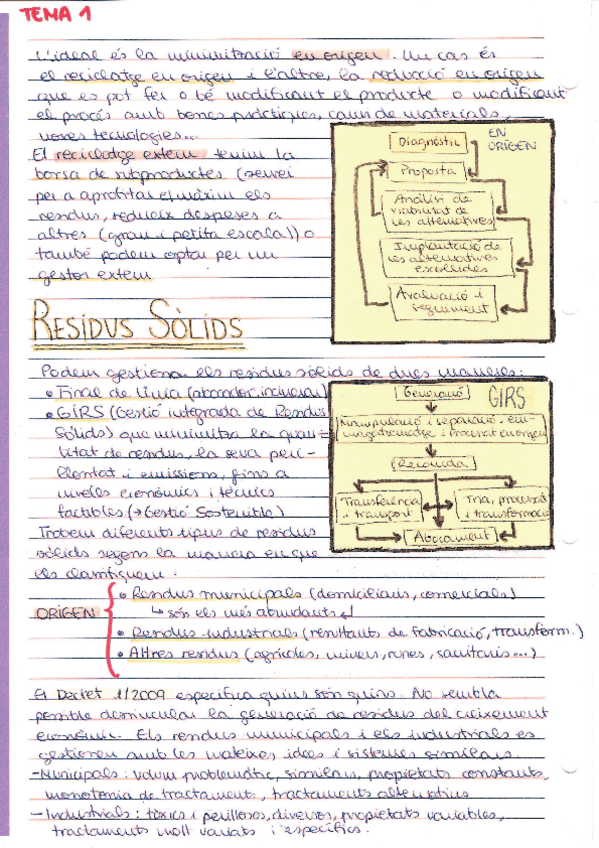 TEMA 1
L'ideal és la minimització en origen. Un cas és
el reciclatge en origen i l'altre, la reducció en origen
que es pot fer o bé modificant el producte o modificant
el procés amb bones pràctiques, canvi de materials,
noves tecnologies...
El reciclatge extern tenim la
borsa de subproductes (servei
per a aprofitar al màxim els
residus, redueix despeses a
altres (gran i petita escala)) o
també podem optar per un
gestor extern
EN
ORIGEN
Diagnòstic
Proposta
Anàlisi de
viabilitat de
les alternatives
Implantació de
les alternatives
escollides
Avaluació i
seguiment
RESIDUS SÒLIDS
Podem gestionar els residus sòlids de dues maneres:
• Final de línia (abocador, incinerar)
• GIRS (Gestió integrada de Residus
Sòlids) que minimitza la quan-
titat de residus, la seva peri-
llositat i emissions, fins a
nivells econòmics i tècnics
factibles (→ Gestió Sostenible)
GIRS
Generació
Manipulació i separació, em-
magatzematge i processat en origen
Recollida
Transferència
i transport
Tria, processat
i transformació
Abocament
Trobem diferents tipus de residus
sòlids segons la manera en que
els classifiquem:
ORIGEN
• Residus municipals (domiciliaris, comercials)
↳ són els més abundants
• Residus industrials (resultants de fabricació, transform.)
• Altres residus (agrícoles, miners, runes, sanitaris...)
El Decret 1/2009 especifica quins són quins. No sembla
possible desvincular la generació de residus del creixement
econòmic. Els residus municipals i els industrials es
gestionen amb les mateixes idees i sistemes similars.
- Municipals: volum problemàtic, similars, propietats constants,
monotonia de tractament, tractaments alternatius
- Industrials: tòxics i perillosos, diversos, propietats variables,
tractaments molt variats i específics.